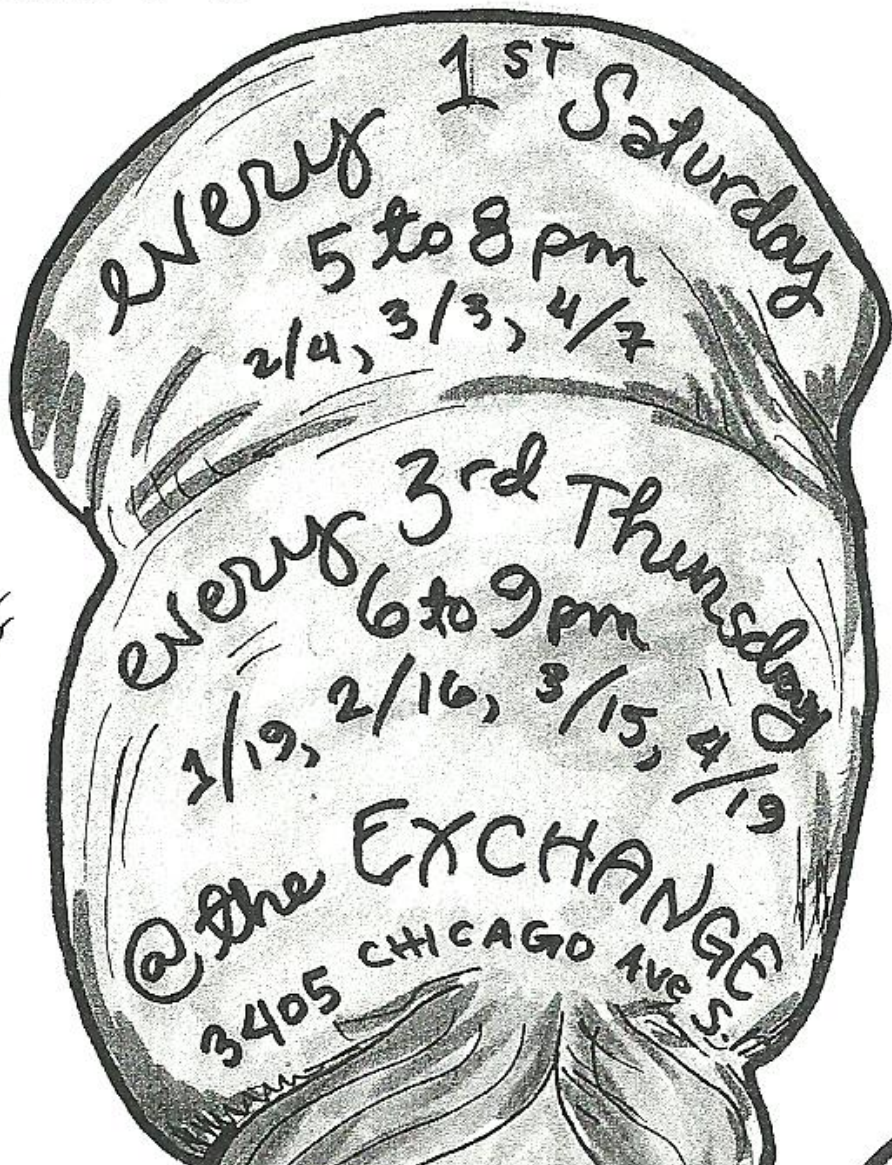 every 1ST Saturday
5 to 8 pm
2/4, 3/3, 4/7
every 3rd Thursday
6 to 9 pm
1/19, 2/16, 3/15, 4/19
@ the EXCHANGE
3405 CHICAGO AVE S.